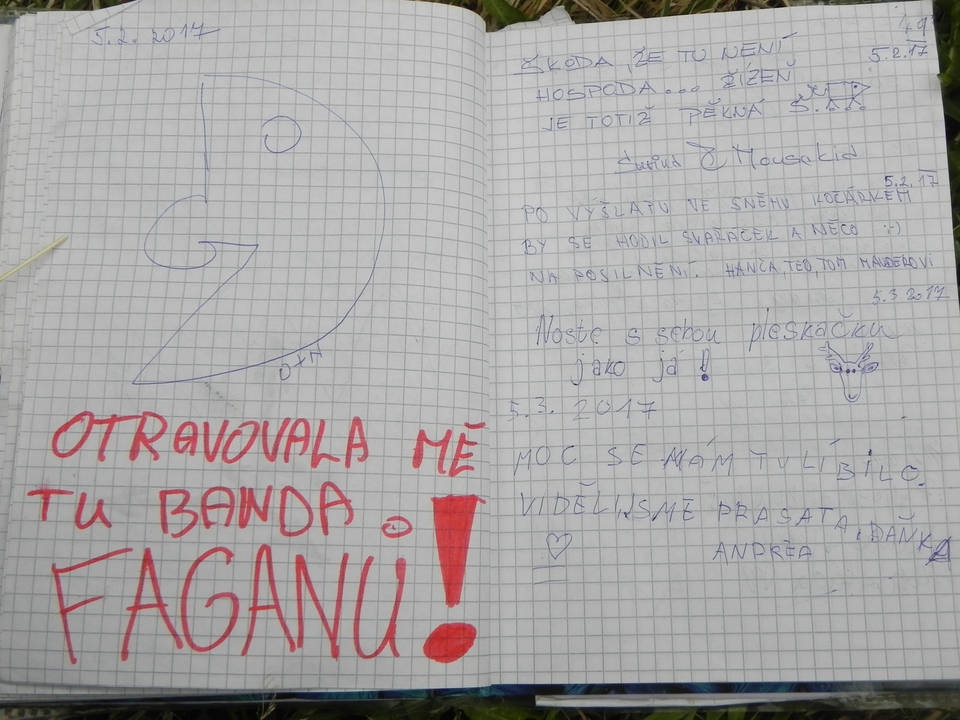 5.2.2017
D+N
OTRAVOVALA MĚ
TU BANDA
FAGANŮ!
49
5.2.17
ŠKODA, ŽE TU NENÍ
HOSPODA... ŽÍZEŇ
JE TOTIŽ PĚKNÁ
5.2.17
PO VÝŠLAPU VE SNĚHU KOČÁRKEM
BY SE HODIL SVAŘÁČEK A NĚCO :-)
NA POSILNĚNÍ. HANČA, TEO, TOM
5.3 2017
Noste s sebou pleskačku
jako já!
5.3.2017
MOC SE NÁM TU LÍBILO.
VIDĚLI JSME PRASATA, DAŇKA
ANDRĚA